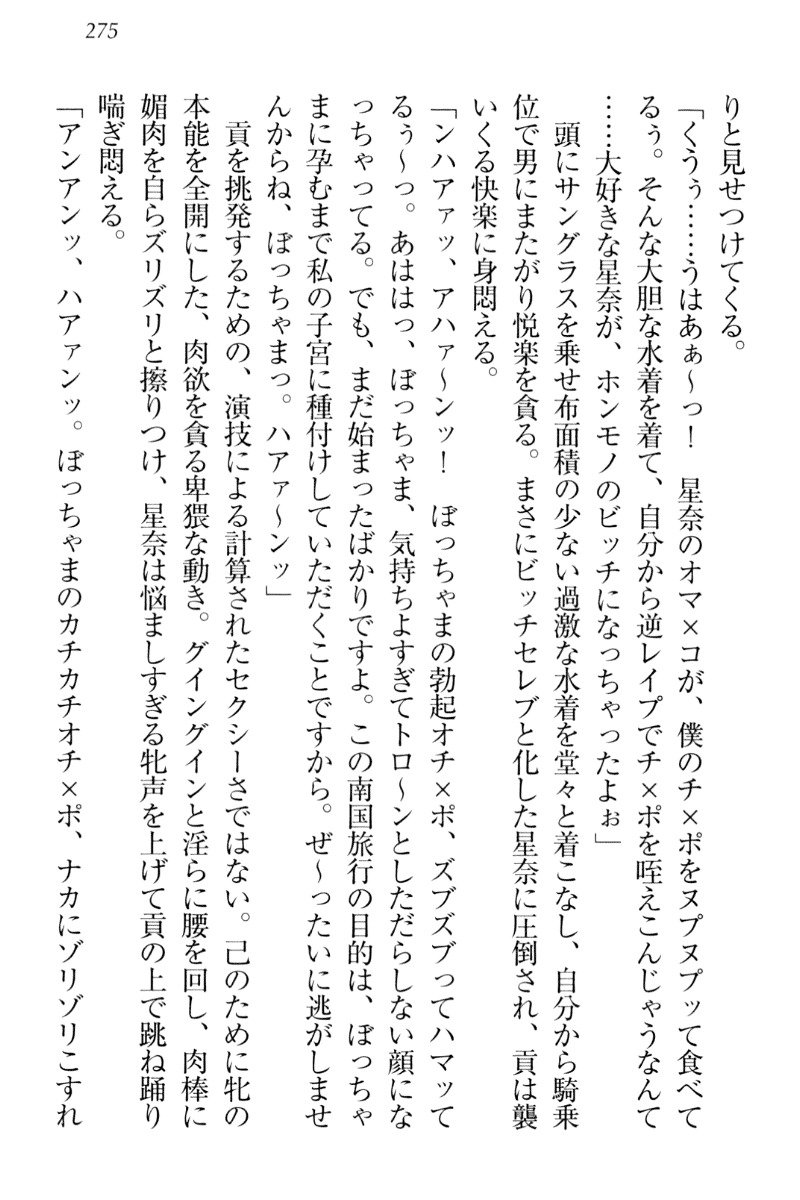 275
りと見せつけてくる。
「くうぅ……うはあぁ～っ！　星奈のオマ×コが、僕のチ×ポをヌプヌプッて食べて
るぅ。そんな大胆な水着を着て、自分から逆レイプでチ×ポを咥えこんじゃうなんて
……大好きな星奈が、ホンモノのビッチになっちゃったよぉ」
　頭にサングラスを乗せ布面積の少ない過激な水着を堂々と着こなし、自分から騎乗
位で男にまたがり悦楽を貪る。まさにビッチセレブと化した星奈に圧倒され、貢は襲
いくる快楽に身悶える。
「ンハアァッ、アハァ～ンッ！　ぼっちゃまの勃起オチ×ポ、ズブズブってハマッて
るぅ～っ。あははっ、ぼっちゃま、気持ちよすぎてトロ～ンとしただらしない顔にな
っちゃってる。でも、まだ始まったばかりですよ。この南国旅行の目的は、ぼっちゃ
まに孕むまで私の子宮に種付けしていただくことですから。ぜ～ったいに逃がしませ
んからね、ぼっちゃまっ。ハアァ～ンッ」
　貢を挑発するための、演技による計算されたセクシーさではない。己のために牝の
本能を全開にした、肉欲を貪る卑猥な動き。グイングインと淫らに腰を回し、肉棒に
媚肉を自らズリズリと擦りつけ、星奈は悩ましすぎる牝声を上げて貢の上で跳ね踊り
喘ぎ悶える。
「アンアンッ、ハアァンッ。ぼっちゃまのカチカチオチ×ポ、ナカにゾリゾリこすれ